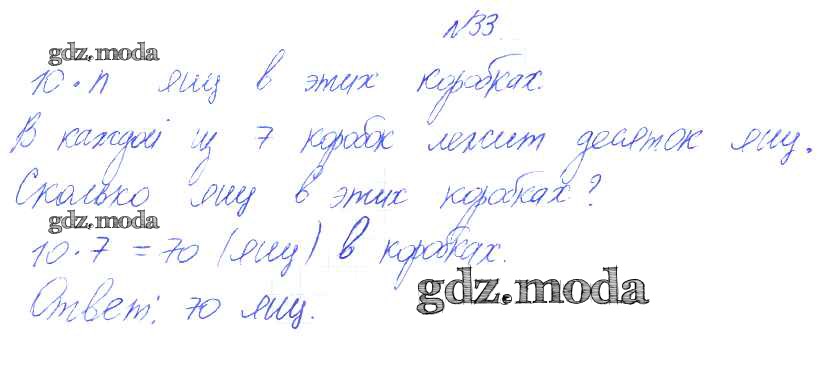 №33.
gdz.moda
10·n яиц в этих коробках.
В каждой из 7 коробок лежит десяток яиц.
Сколько яиц в этих коробках?
gdz.moda
10·7 = 70 (яиц) в коробках.
gdz.moda
Ответ: 70 яиц.